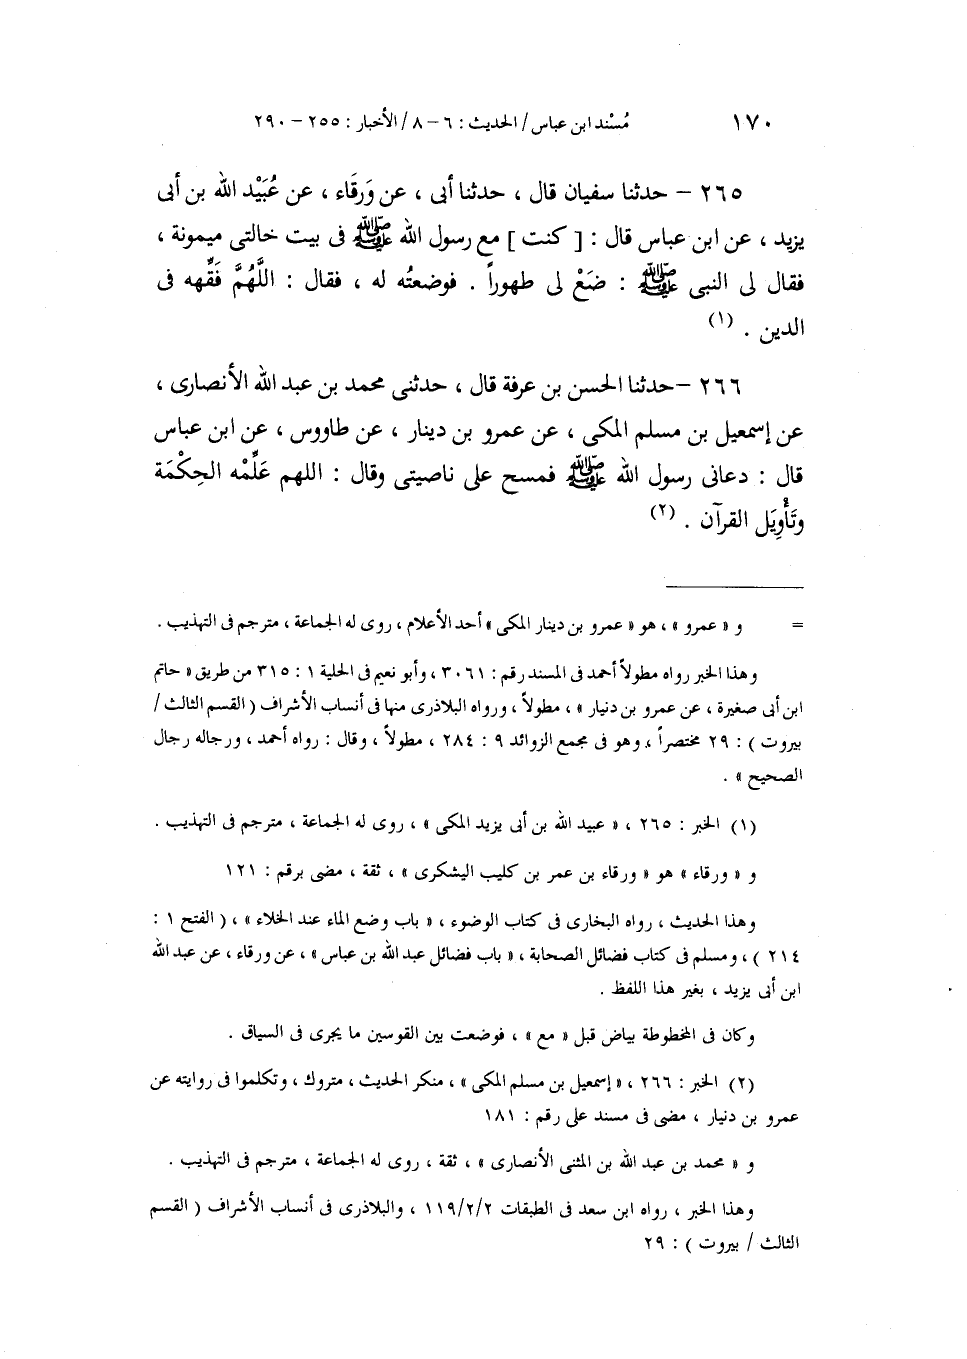 ١٧٠ مُسْند ابن عباس / الحديث : ٦ – ٨ / الأخبار : ٢٥٥ – ٢٩٠
٢٦٥ – حدثنا سفيان قال ، حدثنا أبى ، عن وَرقَاء ، عن عُبَيْد الله بن أبى
يزيد ، عن ابن عباس قال : [ كنت ] مع رسول الله ﷺ فى بيت خالتى ميمونة ،
فقال لى النبى ﷺ : ضَعْ لى طهوراً . فوضعتُه له ، فقال : اللَّهُمَّ فَقِّهه فى
الدين . (١)
٢٦٦ –حدثنا الحسن بن عرفة قال ، حدثنى محمد بن عبد الله الأنصارى ،
عن إسمعيل بن مسلم المكى ، عن عمرو بن دينار ، عن طاووس ، عن ابن عباس
قال : دعانى رسول الله ﷺ فمسح على ناصيتى وقال : اللهم عَلِّمْه الحِكْمَة
وتَأْوِيَل القرآن . (٢)
= و « عمرو » ، هو « عمرو بن دينار المكى » أحد الأعلام ، روى له الجماعة ، مترجم فى التهذيب .
وهذا الخبر رواه مطولاً أحمد فى المسند رقم : ٣٠٦١ ، وأبو نعيم فى الحلية ١ : ٣١٥ من طريق « حاتم
ابن أبى صغيرة ، عن عمرو بن دنيار » ، مطولاً ، ورواه البلاذرى منها فى أنساب الأشراف ( القسم الثالث /
بيروت ) : ٢٩ مختصراً ، وهو فى مجمع الزوائد ٩ : ٢٨٤ ، مطولاً ، وقال : رواه أحمد ، ورجاله رجال
الصحيح » .
(١) الخبر : ٢٦٥ ، « عبيد الله بن أبى يزيد المكى » ، روى له الجماعة ، مترجم فى التهذيب .
و « ورقاء » هو « ورقاء بن عمر بن كليب اليشكرى » ، ثقة ، مضى برقم : ١٢١
وهذا الحديث ، رواه البخارى فى كتاب الوضوء ، « باب وضع الماء عند الخلاء » ، ( الفتح ١ :
٢١٤ ) ، ومسلم فى كتاب فضائل الصحابة ، « باب فضائل عبد الله بن عباس » ، عن ورقاء ، عن عبد الله
ابن أبى يزيد ، بغير هذا اللفظ .
وكان فى المخطوطة بياض قبل « مع » ، فوضعت بين القوسين ما يجرى فى السياق .
(٢) الخبر : ٢٦٦ ، « إسمعيل بن مسلم المكى » ، منكر الحديث ، متروك ، وتكلموا فى روايته عن
عمرو بن دنيار ، مضى فى مسند على رقم : ١٨١
و « محمد بن عبد الله بن المثنى الأنصارى » ، ثقة ، روى له الجماعة ، مترجم فى التهذيب .
وهذا الخبر ، رواه ابن سعد فى الطبقات ١١٩/٢/٢ ، والبلاذرى فى أنساب الأشراف ( القسم
الثالث / بيروت ) : ٢٩